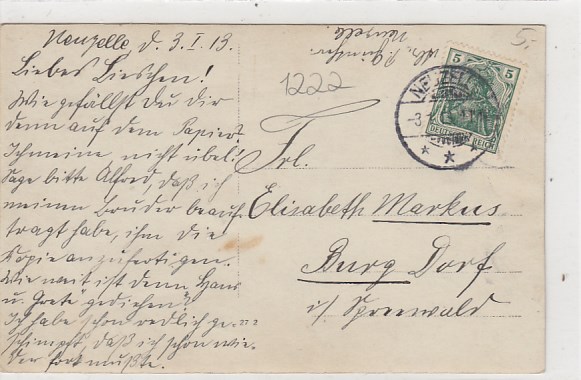 Neuzelle d. 3. I. 13.
Liebes Lieschen!
Wie gefällst du dir
denn auf dem Papier?
Ich meine, nicht übel!
Sage bitte Alfred, daß ich
meinen Bruder beauf
tragt habe, ihm die
Kopie anzufertigen.
Wie weit ist denn Hans
u. Grete gediehen?
Ich habe schon redlich ge=
schimpft, daß ich schon wie=
der fort mußte.
Neuzelle.
1222
5.-
5 5
DEUTSCHES REICH
NEUZELLE
Frl.
Elisabeth Markus
Burg Dorf
i/s Spreewald